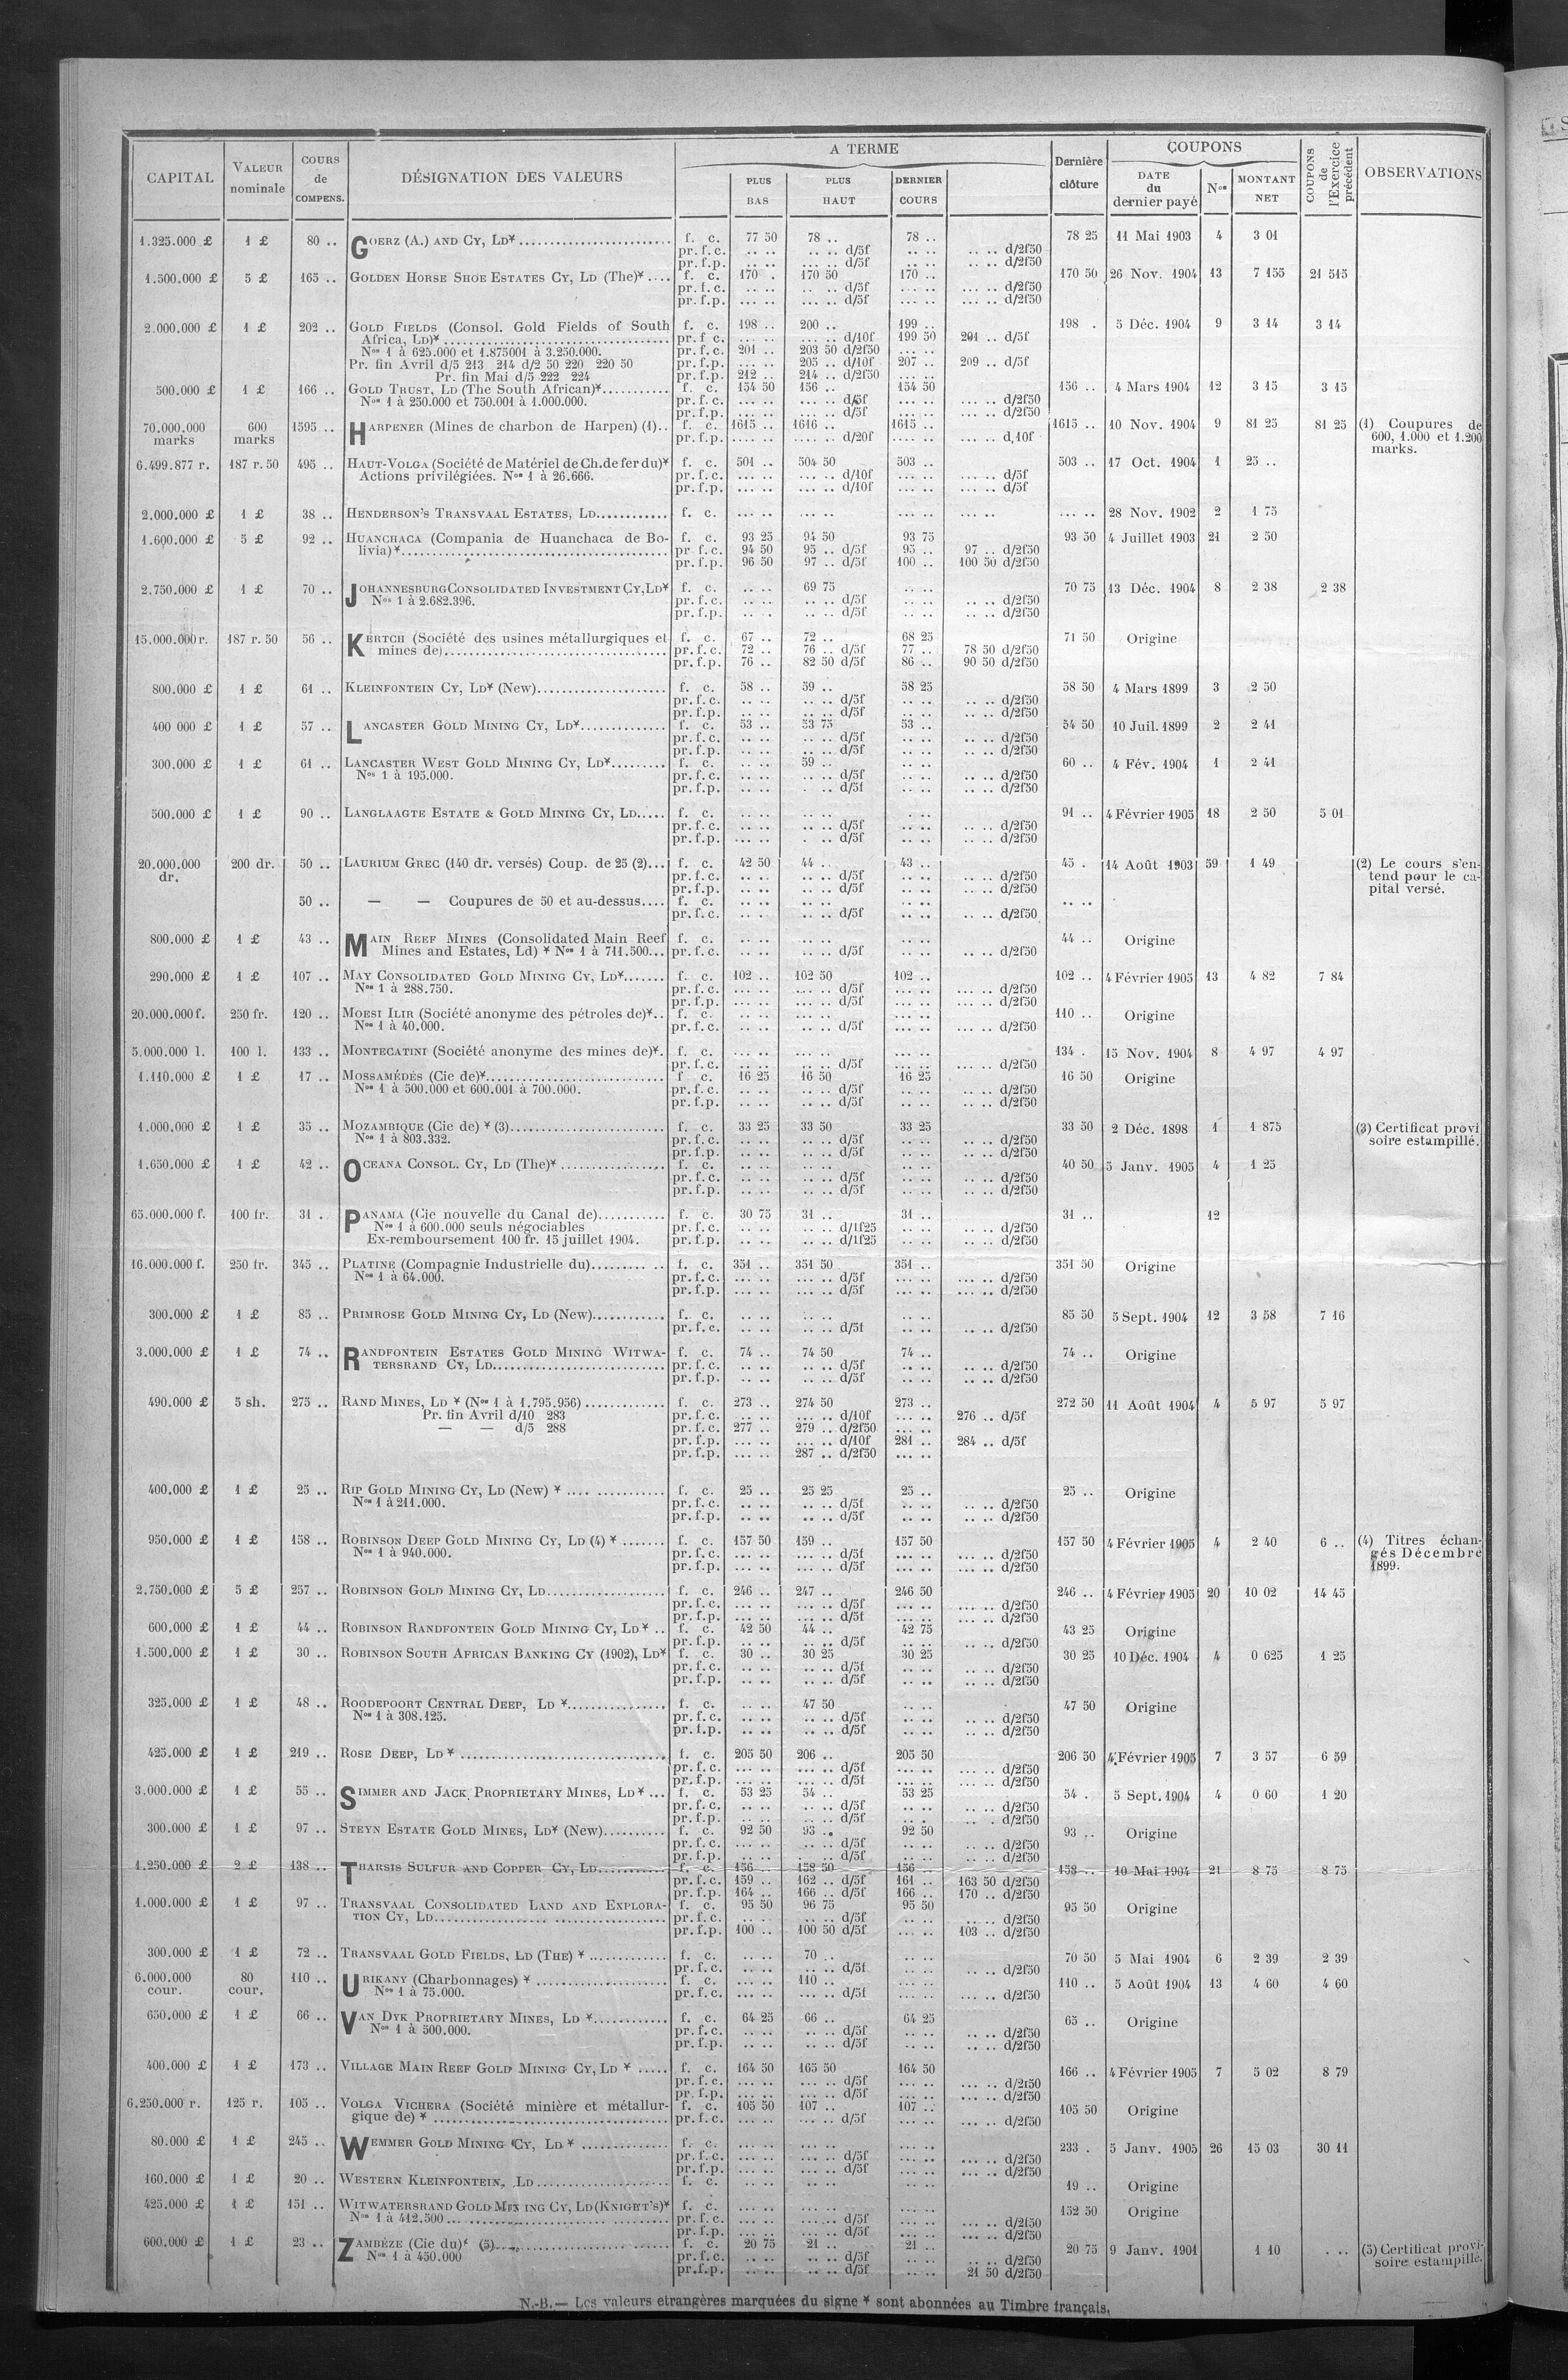 CAPITAL VALEUR nominale COURS de COMPENS. DÉSIGNATION DES VALEURS A TERME PLUS BAS PLUS HAUT DERNIER COURS Dernière clôture COUPONS DATE du dernier payé Nos MONTANT NET COUPONS de l'Exercice précédent OBSERVATIONS
1.325.000 £ 1 £ 80 .. GOERZ (A.) AND CY, LD* f. c. 77 50 78 .. 78 .. 78 25 11 Mai 1903 4 3 01
pr. f. c. .. .. .. .. d/5f .. .. .. .. d/2f50
pr. f. p. .. .. .. .. d/5f .. .. .. .. d/2f50
1.500.000 £ 5 £ 165 .. GOLDEN HORSE SHOE ESTATES CY, LD (The)* .... f. c. 170 . 170 50 170 .. 170 50 26 Nov. 1904 13 7 155 21 515
pr. f. c. .. .. .. .. d/5f ... .. ... .. d/2f50
pr. f.p. ... .. ... .. d/5f ... .. ... .. d/2f50
2.000.000 £ 1 £ 202 .. GOLD FIELDS (Consol. Gold Fields of South f. c. 198 .. 200 .. 199 .. 198 . 5 Déc. 1904 9 3 14 3 14
Africa, LD)* pr. f c. ... .. ... .. d/10f 199 50 201 .. d/5f
Nos 1 à 625.000 et 1.875001 à 3.250.000. pr. f.c. 201 .. 203 50 d/2f50 ... ..
Pr. fin Avril d/5 213 214 d/2 50 220 220 50 pr. f.p. ... .. 205 .. d/10f 207 .. 209 .. d/5f
Pr. fin Mai d/5 222 224 pr. f.p. 212 .. 214 .. d/2f50 ... ..
500.000 £ 1 £ 166 .. GOLD TRUST, LD (The South African)* f. c. 154 50 156 .. 154 50 156 .. 4 Mars 1904 12 3 15 3 15
Nos 1 à 250.000 et 750.001 à 1.000.000. pr. f. c. ... .. ... .. d/5f ... .. ... .. d/2f50
pr. f.p. ... .. ... .. d/5f ... .. ... .. d/2f50
70.000.000 600 1595 .. HARPENER (Mines de charbon de Harpen) (1).. f. c. 1615 .. 1616 .. 1615 .. 1615 .. 10 Nov. 1904 9 81 25 81 25 (1) Coupures de
marks marks pr. f.p. .... .. .... .. d/20f .... .. ... .. d,10f 600, 1.000 et 1.200
marks.
6.499.877 r. 187 r. 50 495 .. HAUT-VOLGA (Société de Matériel de Ch. de fer du)* f. c. 501 .. 504 50 503 .. 503 .. 17 Oct. 1904 1 25 ..
Actions privilégiées. Nos 1 à 26.666. pr. f. c. ... .. ... .. d/10f ... .. ... .. d/5f
pr. f.p. ... .. ... .. d/10f ... .. ... .. d/5f
2.000.000 £ 1 £ 38 .. HENDERSON'S TRANSVAAL ESTATES, LD f. c. ... .. ... .. ... .. ... .. ... .. 28 Nov. 1902 2 1 75
1.600.000 £ 5 £ 92 .. HUANCHACA (Compania de Huanchaca de Bo- f. c. 93 25 94 50 93 75 93 50 4 Juillet 1903 21 2 50
livia)* pr. f. c. 94 50 95 .. d/5f 95 .. 97 .. d/2f50
pr. f.p. 96 50 97 .. d/5f 100 .. 100 50 d/2f50
2.750.000 £ 1 £ 70 .. JOHANNESBURG CONSOLIDATED INVESTMENT CY, LD* f. c. .. .. 69 75 .. .. 70 75 13 Déc. 1904 8 2 38 2 38
Nos 1 à 2.682.396. pr. f.c. .. .. .. .. d/5f .. .. .. .. d/2f50
pr. f.p. .. .. .. .. d/5f .. .. .. .. d/2f50
15.000.000 r. 187 r. 50 56 .. KERTCH (Société des usines métallurgiques et f. c. 67 .. 72 .. 68 25 71 50 Origine
mines de) pr. f.c. 72 .. 76 .. d/5f 77 .. 78 50 d/2f50
pr. f.p. 76 .. 82 50 d/5f 86 .. 90 50 d/2f50
800.000 £ 1 £ 61 .. KLEINFONTEIN CY, LD* (New) f. c. 58 .. 59 .. 58 25 58 50 4 Mars 1899 3 2 50
pr. f.c. .. .. .. .. d/5f .. .. .. .. d/2f50
pr. f.p. .. .. .. .. d/5f .. .. .. .. d/2f50
400 000 £ 1 £ 57 .. LANCASTER GOLD MINING CY, LD* f. c. 53 .. 53 75 53 .. 54 50 10 Juil. 1899 2 2 41
pr. f.c. .. .. .. .. d/5f .. .. .. .. d/2f50
pr. f.p. .. .. .. .. d/5f .. .. .. .. d/2f50
300.000 £ 1 £ 61 .. LANCASTER WEST GOLD MINING CY, LD* f. c. .. .. 59 .. .. .. 60 .. 4 Fév. 1904 1 2 41
Nos 1 à 195.000. pr. f.c. .. .. .. .. d/5f .. .. .. .. d/2f50
pr. f.p. .. .. .. .. d/5f .. .. .. .. d/2f50
500.000 £ 1 £ 90 .. LANGLAAGTE ESTATE & GOLD MINING CY, LD f. c. .. .. .. .. .. .. 91 .. 4 Février 1905 18 2 50 5 01
pr. f.c. .. .. .. .. d/5f .. .. .. .. d/2f50
pr. f.p. .. .. .. .. d/5f .. .. .. .. d/2f50
20.000.000 200 dr. 50 .. LAURIUM GREC (140 dr. versés) Coup. de 25 (2)... f. c. 42 50 44 .. 43 .. 45 . 14 Août 1903 59 1 49 (2) Le cours s'en-
dr. pr. f.c. .. .. .. .. d/5f .. .. .. .. d/2f50 tend pour le ca-
pr. f.p. .. .. .. .. d/5f .. .. .. .. d/2f50 pital versé.
50 .. — — Coupures de 50 et au-dessus.... f. c. .. .. .. .. .. .. .. ..
pr. f.c. .. .. .. .. d/5f .. .. .. .. d/2f50
800.000 £ 1 £ 43 .. MAIN REEF MINES (Consolidated Main Reef f. c. .. .. .. .. .. .. 44 .. Origine
Mines and Estates, Ld) * Nos 1 à 711.500... pr. f.c. .. .. .. .. d/5f .. .. .. .. d/2f50
290.000 £ 1 £ 107 .. MAY CONSOLIDATED GOLD MINING CY, LD* f. c. 102 .. 102 50 102 .. 102 .. 4 Février 1905 13 4 82 7 84
Nos 1 à 288.750. pr. f.c. ... .. ... .. d/5f ... .. ... .. d/2f50
pr. f.p. ... .. ... .. d/5f ... .. ... .. d/2f50
20.000.000 f. 250 fr. 120 .. MOESI ILIR (Société anonyme des pétroles de)*.. f. c. ... .. ... .. ... .. 110 .. Origine
Nos 1 à 40.000. pr. f.c. ... .. .. .. d/5f ... .. ... .. d/2f50
5.000.000 l. 100 l. 133 .. MONTECATINI (Société anonyme des mines de)*. f. c. ... .. ... .. ... .. 134 . 15 Nov. 1904 8 4 97 4 97
pr. f.c. .. .. .. .. d/5f ... .. ... .. d/2f50
1.110.000 £ 1 £ 17 .. MOSSAMÉDÈS (Cie de)* f c. 16 25 16 50 16 25 16 50 Origine
Nos 1 à 500.000 et 600.001 à 700.000. pr. f.c. .. .. .. .. d/5f .. .. .. .. d/2f50
pr. f.p. .. .. .. .. d/5f .. .. .. .. d/2f50
1.000.000 £ 1 £ 35 .. MOZAMBIQUE (Cie de) * (3) f. c. 33 25 33 50 33 25 33 50 2 Déc. 1898 1 1 875 (3) Certificat provi
Nos 1 à 803.332. pr. f.c. .. .. .. .. d/5f .. .. .. .. d/2f50 soire estampillé.
pr. f.p. .. .. .. .. d/5f .. .. .. .. d/2f50
1.650.000 £ 1 £ 42 .. OCEANA CONSOL. CY, LD (The)* f. c. .. .. .. .. .. .. 40 50 5 Janv. 1905 4 1 25
pr. f.c. .. .. .. .. d/5f .. .. .. .. d/2f50
pr. f.p. .. .. .. .. d/5f .. .. .. .. d/2f50
65.000.000 f. 100 fr. 31 . PANAMA (Cie nouvelle du Canal de) f. c. 30 75 31 .. 31 .. 31 .. 12
Nos 1 à 600.000 seuls négociables pr. f.c. .. .. .. .. d/1f25 .. .. .. .. d/2f50
Ex-remboursement 100 fr. 15 juillet 1904. pr. f.p. .. .. .. .. d/1f25 .. .. .. .. d/2f50
16.000.000 f. 250 fr. 345 .. PLATINE (Compagnie Industrielle du) f. c. 351 .. 351 50 351 .. 351 50 Origine
Nos 1 à 64.000. pr. f.c. ... .. ... .. d/5f ... .. ... .. d/2f50
pr. f.p. ... .. ... .. d/5f ... .. ... .. d/2f50
300.000 £ 1 £ 85 .. PRIMROSE GOLD MINING CY, LD (New) f. c. .. .. .. .. .. .. 85 50 5 Sept. 1904 12 3 58 7 16
pr. f.c. .. .. .. .. d/5f .. .. .. .. d/2f50
3.000.000 £ 1 £ 74 .. RANDFONTEIN ESTATES GOLD MINING WITWA- f. c. 74 .. 74 50 74 .. 74 .. Origine
TERSRAND CY, LD pr. f.c. .. .. .. .. d/5f .. .. .. .. d/2f50
pr. f.p. .. .. .. .. d/5f .. .. .. .. d/2f50
490.000 £ 5 sh. 275 .. RAND MINES, LD * (Nos 1 à 1.795.956) f. c. 273 .. 274 50 273 .. 272 50 11 Août 1904 4 5 97 5 97
Pr. fin Avril d/10 283 pr. f.c. ... .. ... .. d/10f ... .. 276 .. d/5f
— — d/5 288 pr. f.c. 277 .. 279 .. d/2f50 ... ..
pr. f.p. ... .. ... .. d/10f 281 .. 284 .. d/5f
pr. f.p. ... .. 287 .. d/2f50 ... ..
400.000 £ 1 £ 25 .. RIP GOLD MINING CY, LD (New) * f. c. 25 .. 25 25 25 .. 25 .. Origine
Nos 1 à 211.000. pr. f.c. .. .. .. .. d/5f .. .. .. .. d/2f50
pr. f.p. .. .. .. .. d/5f .. .. .. .. d/2f50
950.000 £ 1 £ 158 .. ROBINSON DEEP GOLD MINING CY, LD (4) * f. c. 157 50 159 .. 157 50 157 50 4 Février 1905 4 2 40 6 .. (4) Titres échan-
Nos 1 à 940.000. pr. f.c. ... .. ... .. d/5f ... .. ... .. d/2f50 gés Décembre
pr. f.p. ... .. ... .. d/5f ... .. ... .. d/2f50 1899.
2.750.000 £ 5 £ 257 .. ROBINSON GOLD MINING CY, LD f. c. 246 .. 247 .. 246 50 246 .. 4 Février 1905 20 10 02 14 45
pr. f.c. ... .. ... .. d/5f ... .. ... .. d/2f50
pr. f.p. ... .. ... .. d/5f ... .. ... .. d/2f50
600.000 £ 1 £ 44 .. ROBINSON RANDFONTEIN GOLD MINING CY, LD * .. f. c. 42 50 44 .. 42 75 43 25 Origine
pr. f.p. .. .. .. .. d/5f .. .. .. .. d/2f50
1.500.000 £ 1 £ 30 .. ROBINSON SOUTH AFRICAN BANKING CY (1902), LD* f. c. 30 .. 30 25 30 25 30 25 10 Déc. 1904 4 0 625 1 25
pr. f.c. .. .. .. .. d/5f .. .. .. .. d/2f50
pr. f.p. .. .. .. .. d/5f .. .. .. .. d/2f50
325.000 £ 1 £ 48 .. ROODEPOORT CENTRAL DEEP, LD * f. c. .. .. 47 50 .. .. 47 50 Origine
Nos 1 à 308.125. pr. f.c. .. .. .. .. d/5f .. .. .. .. d/2f50
pr. f.p. .. .. .. .. d/5f .. .. .. .. d/2f50
425.000 £ 1 £ 219 .. ROSE DEEP, LD * f. c. 205 50 206 .. 205 50 206 50 4 Février 1905 7 3 57 6 59
pr. f.c. ... .. ... .. d/5f ... .. ... .. d/2f50
pr. f.p. ... .. ... .. d/5f ... .. ... .. d/2f50
3.000.000 £ 1 £ 55 .. SIMMER AND JACK PROPRIETARY MINES, LD * ... f. c. 53 25 54 .. 53 25 54 . 5 Sept. 1904 4 0 60 1 20
pr. f.c. .. .. .. .. d/5f .. .. .. .. d/2f50
pr. f.p. .. .. .. .. d/5f .. . .. . d/2f50
300.000 £ 1 £ 97 .. STEYN ESTATE GOLD MINES, LD* (New) f. c. 92 50 93 .. 92 50 93 .. Origine
pr. f.c. .. .. .. .. d/5f .. .. .. .. d/2f50
pr. f.p. .. .. .. .. d/5f .. .. .. .. d/2f50
1.250.000 £ 2 £ 138 .. THARSIS SULFUR AND COPPER CY, LD f. c. 156 158 50 156 158 .. 10 Mai 1904 21 8 75 8 75
pr. f.c. 159 .. 162 .. d/5f 161 .. 163 50 d/2f50
pr. f.p. 164 .. 166 .. d/5f 166 .. 170 .. d/2f50
1.000.000 £ 1 £ 97 .. TRANSVAAL CONSOLIDATED LAND AND EXPLORA- f. c. 95 50 96 75 95 50 95 50 Origine
TION CY, LD pr. f.c. .. .. .. .. d/5f .. .. .. .. d/2f50
pr. f.p. 100 .. 100 50 d/5f ... .. 103 .. d/2f50
300.000 £ 1 £ 72 .. TRANSVAAL GOLD FIELDS, LD (THE) * f. c. .. .. 70 .. .. .. 70 50 5 Mai 1904 6 2 39 2 39
pr. f.c. .. .. .. .. d/5f .. .. .. .. d/2f50
6.000.000 80 110 .. URIKANY (Charbonnages) * f. c. ... .. 110 .. ... .. 110 .. 5 Août 1904 13 4 60 4 60
cour. cour. Nos 1 à 75.000. pr. f.c. ... .. ... .. d/5f ... .. ... .. d/2f50
650.000 £ 1 £ 66 .. VAN DYK PROPRIETARY MINES, LD * f. c. 64 25 66 .. 64 25 65 .. Origine
Nos 1 à 500.000. pr. f.c. .. .. .. .. d/5f .. .. .. .. d/2f50
pr. f.p. .. .. .. .. d/5f .. .. .. .. d/2f50
400.000 £ 1 £ 173 .. VILLAGE MAIN REEF GOLD MINING CY, LD * ..... f. c. 164 50 165 50 164 50 166 .. 4 Février 1905 7 5 02 8 79
pr. f.c. ... .. ... .. d/5f ... .. ... .. d/2f50
pr. f.p. ... .. ... .. d/5f ... .. ... .. d/2f50
6.250.000 r. 125 r. 105 .. VOLGA VICHERA (Société minière et métallur- f. c. 105 50 107 .. 107 .. 105 50 Origine
gique de) * pr. f.c. ... .. ... .. d/5f ... .. d/2f50
80.000 £ 1 £ 245 .. WEMMER GOLD MINING CY, LD * f. c. ... .. ... .. ... .. 233 . 5 Janv. 1905 26 15 03 30 11
pr. f.c. ... .. ... .. d/5f ... .. ... .. d/2f50
pr. f.p. ... .. ... .. d/5f ... .. ... .. d/2f50
160.000 £ 1 £ 20 .. WESTERN KLEINFONTEIN, LD f. c. .. .. .. .. .. .. 19 .. Origine
425.000 £ 1 £ 151 .. WITWATERSRAND GOLD MINING CY, LD (KNIGHT'S)* f. c. ... .. ... .. ... .. 152 50 Origine
Nos 1 à 412.500 pr. f.c. ... .. ... .. d/5f ... .. ... .. d/2f50
pr. f.p. ... .. ... .. d/5f ... .. ... .. d/2f50
600.000 £ 1 £ 23 .. ZAMBÈZE (Cie du)* (5) f. c. 20 75 21 .. 21 .. 20 75 9 Janv. 1901 1 10 . .. (5) Certificat provi-
Nos 1 à 450.000 pr. f.c. .. .. .. .. d/5f .. .. .. .. d/2f50 soire estampillé.
pr. f.p. .. .. .. .. d/5f .. .. 21 50 d/2f50
N.-B.— Les valeurs etrangères marquées du signe * sont abonnées au Timbre français.